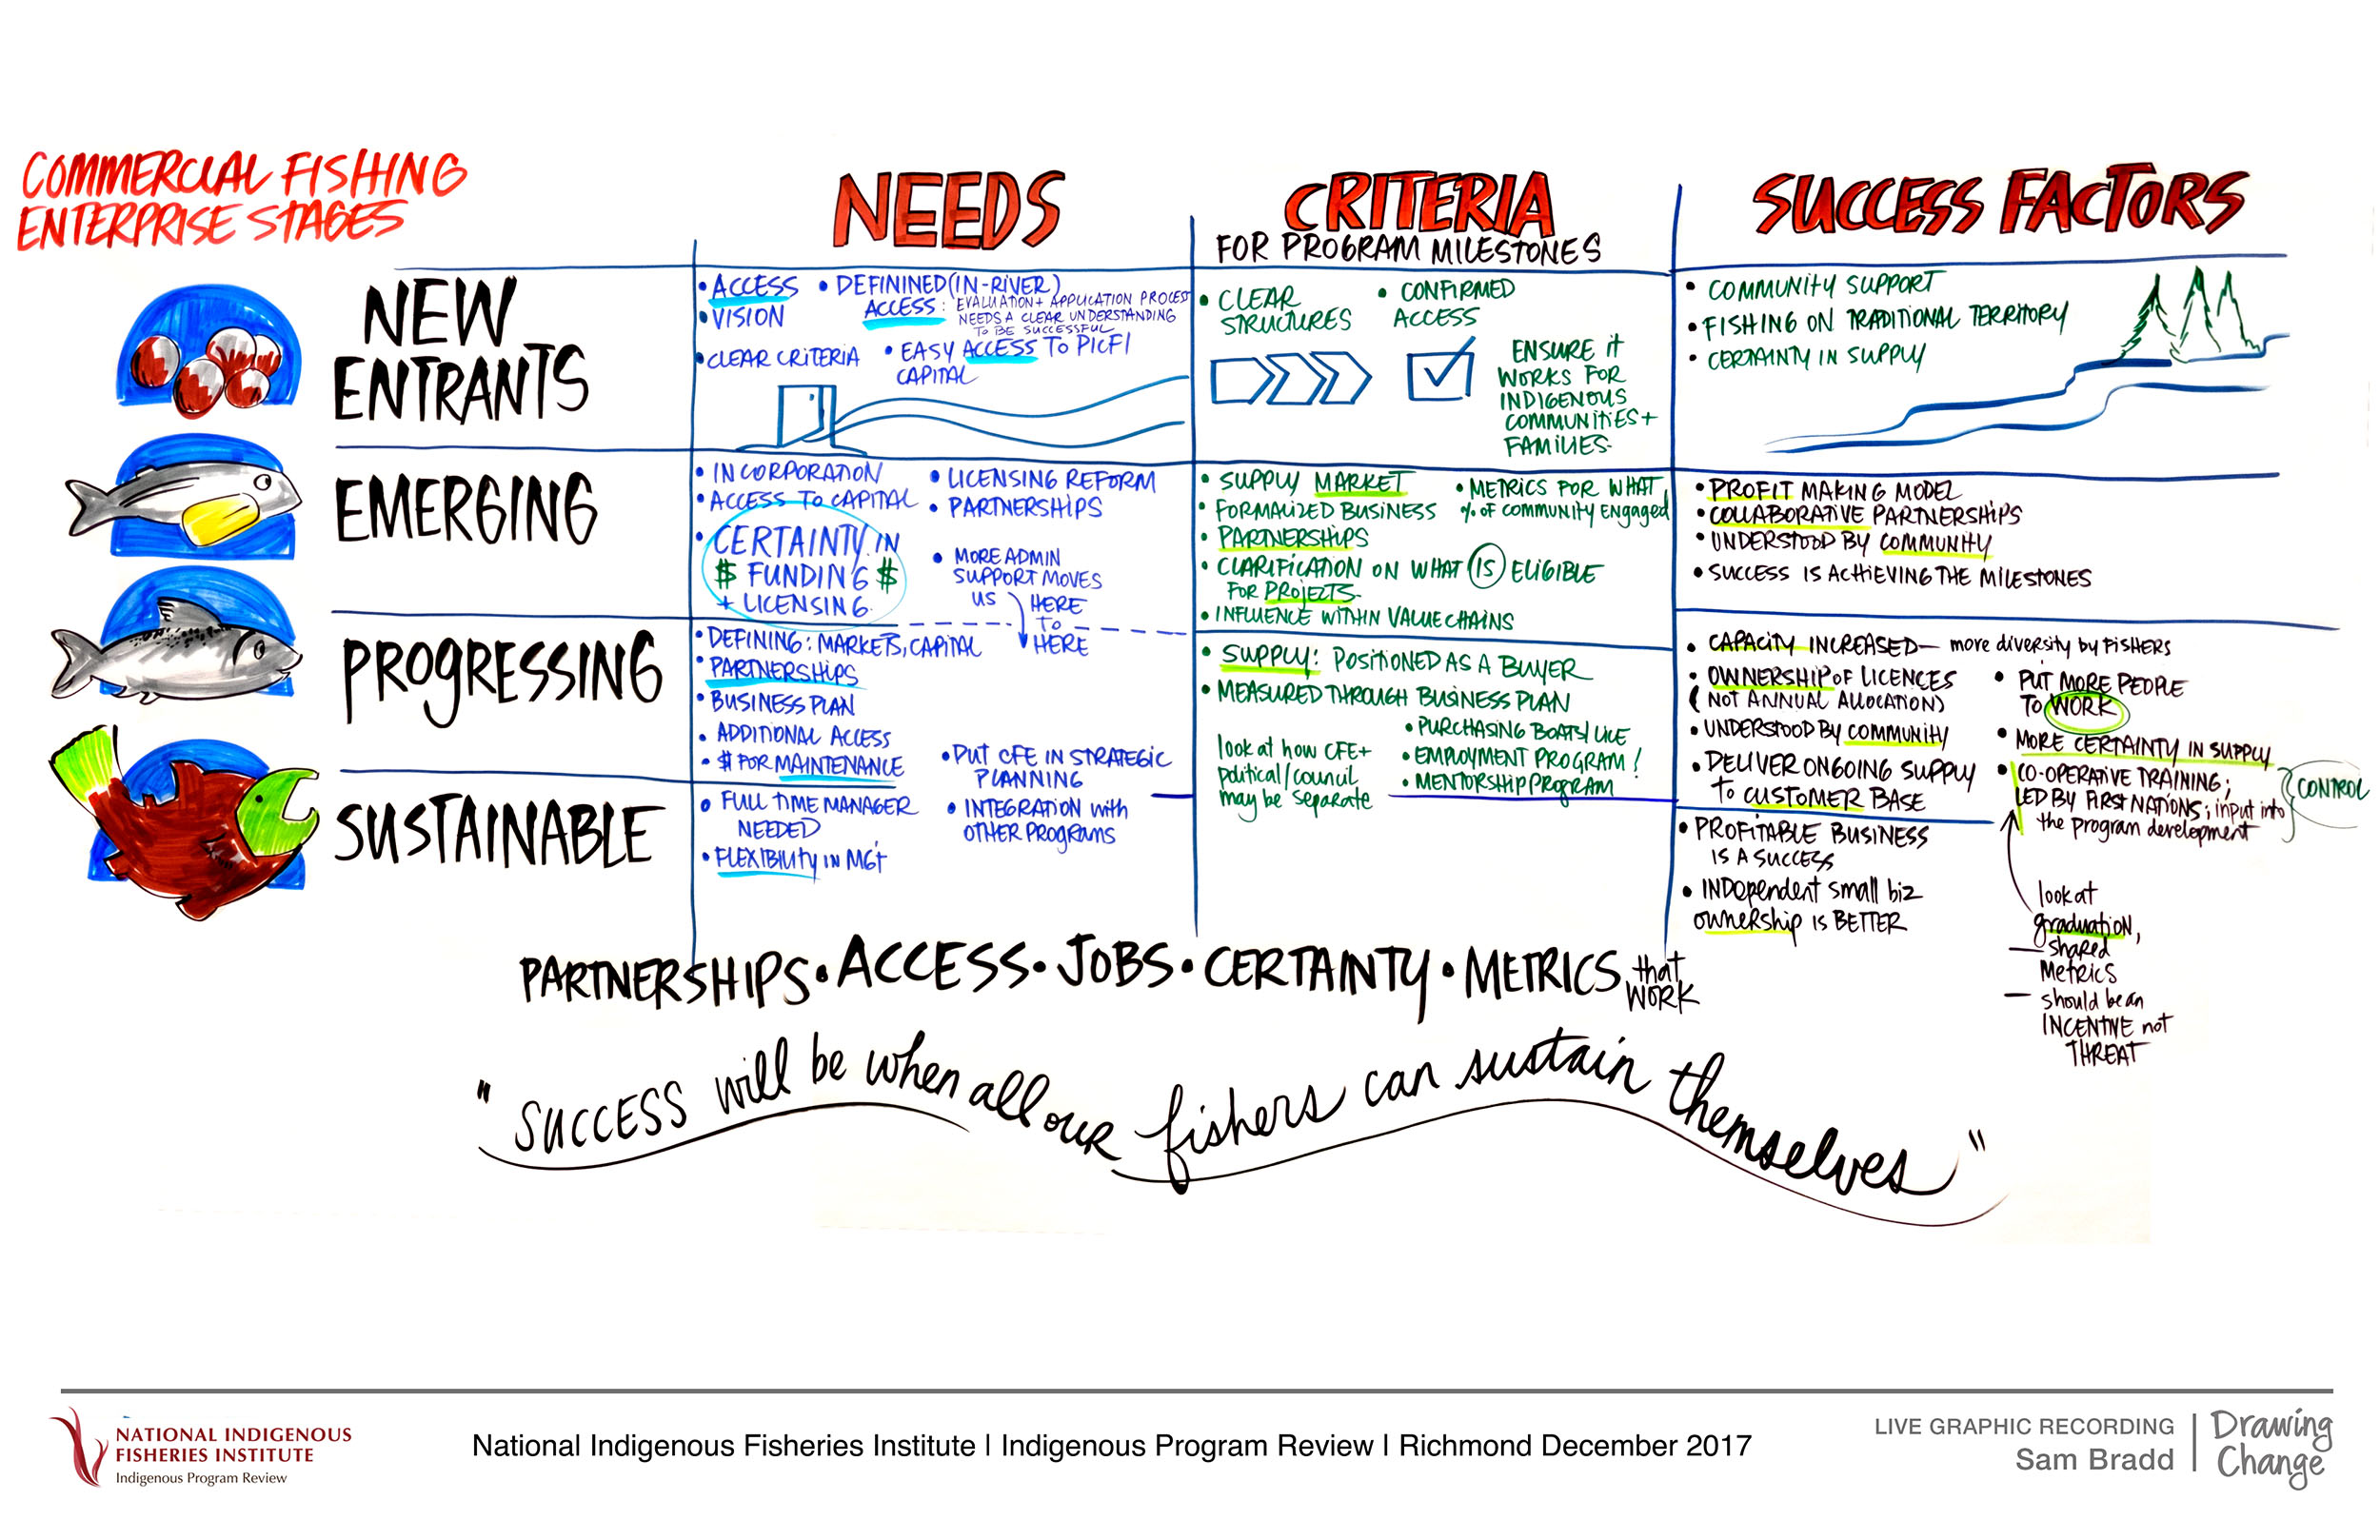 COMMERCIAL FISHING
ENTERPRISE STAGES
NEEDS
CRITERIA
FOR PROGRAM MILESTONES
SUCCESS FACTORS
NEW
ENTRANTS
• ACCESS
• VISION
• CLEAR CRITERIA
• DEFININED (IN-RIVER)
ACCESS: EVALUATION + APPLICATION PROCESS
NEEDS A CLEAR UNDERSTANDING
TO BE SUCCESSFUL
• EASY ACCESS TO PICFI
CAPITAL
• CLEAR
STRUCTURES
• CONFIRMED
ACCESS
ENSURE IT
WORKS FOR
INDIGENOUS
COMMUNITIES +
FAMILIES.
• COMMUNITY SUPPORT
• FISHING ON TRADITIONAL TERRITORY
• CERTAINTY IN SUPPLY
EMERGING
• INCORPORATION
• ACCESS TO CAPITAL
• CERTAINTY IN
$ FUNDING $
+ LICENSING.
• LICENSING REFORM
• PARTNERSHIPS
• MORE ADMIN
SUPPORT MOVES
US HERE
TO
HERE
• SUPPLY MARKET
• FORMALIZED BUSINESS
• PARTNERSHIPS
• CLARIFICATION ON WHAT IS ELIGIBLE
FOR PROJECTS.
• INFLUENCE WITHIN VALUE CHAINS
• METRICS FOR WHAT
% OF COMMUNITY ENGAGED
• PROFIT MAKING MODEL
• COLLABORATIVE PARTNERSHIPS
• UNDERSTOOD BY COMMUNITY
• SUCCESS IS ACHIEVING THE MILESTONES
PROGRESSING
• DEFINING: MARKETS, CAPITAL
• PARTNERSHIPS
• BUSINESS PLAN
• ADDITIONAL ACCESS
• $ FOR MAINTENANCE
• PUT CFE IN STRATEGIC
PLANNING
• INTEGRATION with
OTHER PROGRAMS
• SUPPLY: POSITIONED AS A BUYER
• MEASURED THROUGH BUSINESS PLAN
look at how CFE +
political/council
may be separate
• PURCHASING BOATS/LICE
• EMPLOYMENT PROGRAM!
• MENTORSHIP PROGRAM
• CAPACITY INCREASED — more diversity by FISHERS
• OWNERSHIP OF LICENCES
(NOT ANNUAL ALLOCATION)
• UNDERSTOOD BY COMMUNITY
• DELIVER ONGOING SUPPLY
TO CUSTOMER BASE
• PUT MORE PEOPLE
TO WORK
• MORE CERTAINTY IN SUPPLY
• CO-OPERATIVE TRAINING;
LED BY FIRST NATIONS; input into
the program development
CONTROL
SUSTAINABLE
• FULL TIME MANAGER
NEEDED
• FLEXIBILITY IN MGT
• PROFITABLE BUSINESS
IS A SUCCESS
• INDependent small biz
ownership IS BETTER
look at
graduation,
— shared
METRICS
— should be an
INCENTIVE not
THREAT
PARTNERSHIPS • ACCESS • JOBS • CERTAINTY • METRICS that
WORK
"SUCCESS will be when all our fishers can sustain themselves"
NATIONAL INDIGENOUS
FISHERIES INSTITUTE
Indigenous Program Review
National Indigenous Fisheries Institute | Indigenous Program Review | Richmond December 2017
LIVE GRAPHIC RECORDING
Sam Bradd
Drawing
Change